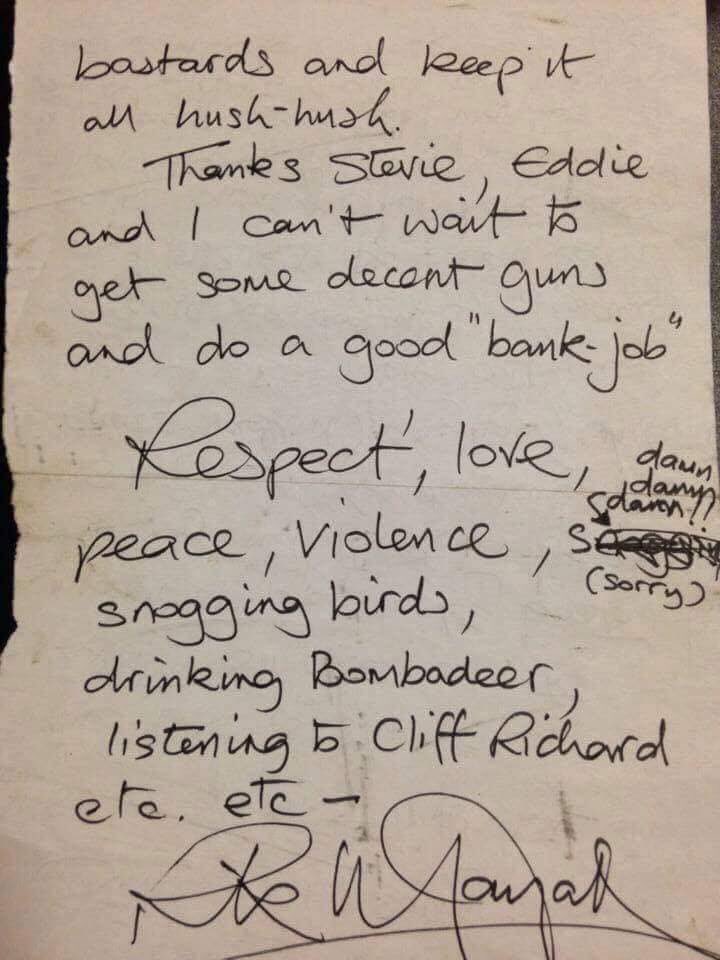 bastards and keep it
all hush-hush.
Thanks Stevie, Eddie
and I can't wait to
get some decent guns
and do a good "bank-job"
Respect, love,
damn
damn
damn!!
peace, violence,
(sorry)
snogging birds,
drinking Bombadeer,
listening to Cliff Richard
etc. etc –